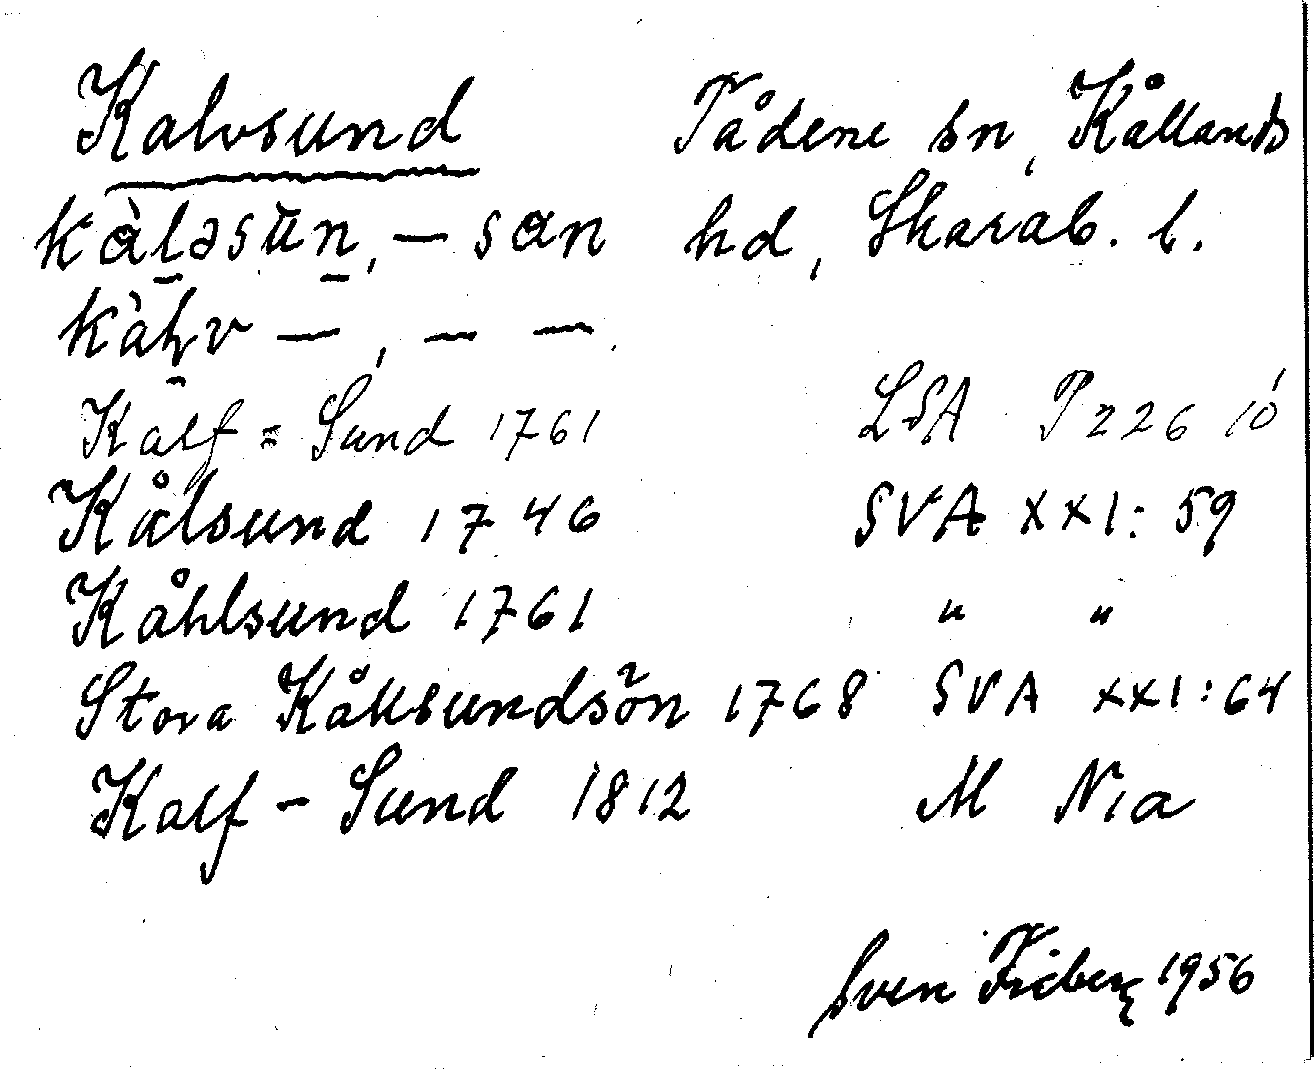 Kalvsund Tådene sn, Kållands
kàləsùn, – san hd, Skarab. l.
kàlv –, – –
Kalf = Sund 1761 LSA P 226 10
Kålsund 1746 SVA XXI: 59
Kåhlsund 1761 " "
Stora Kållsundsön 1768 SVA XXI: 64
Kalf – Sund 1812 M N1a
Sven Friberg 1956